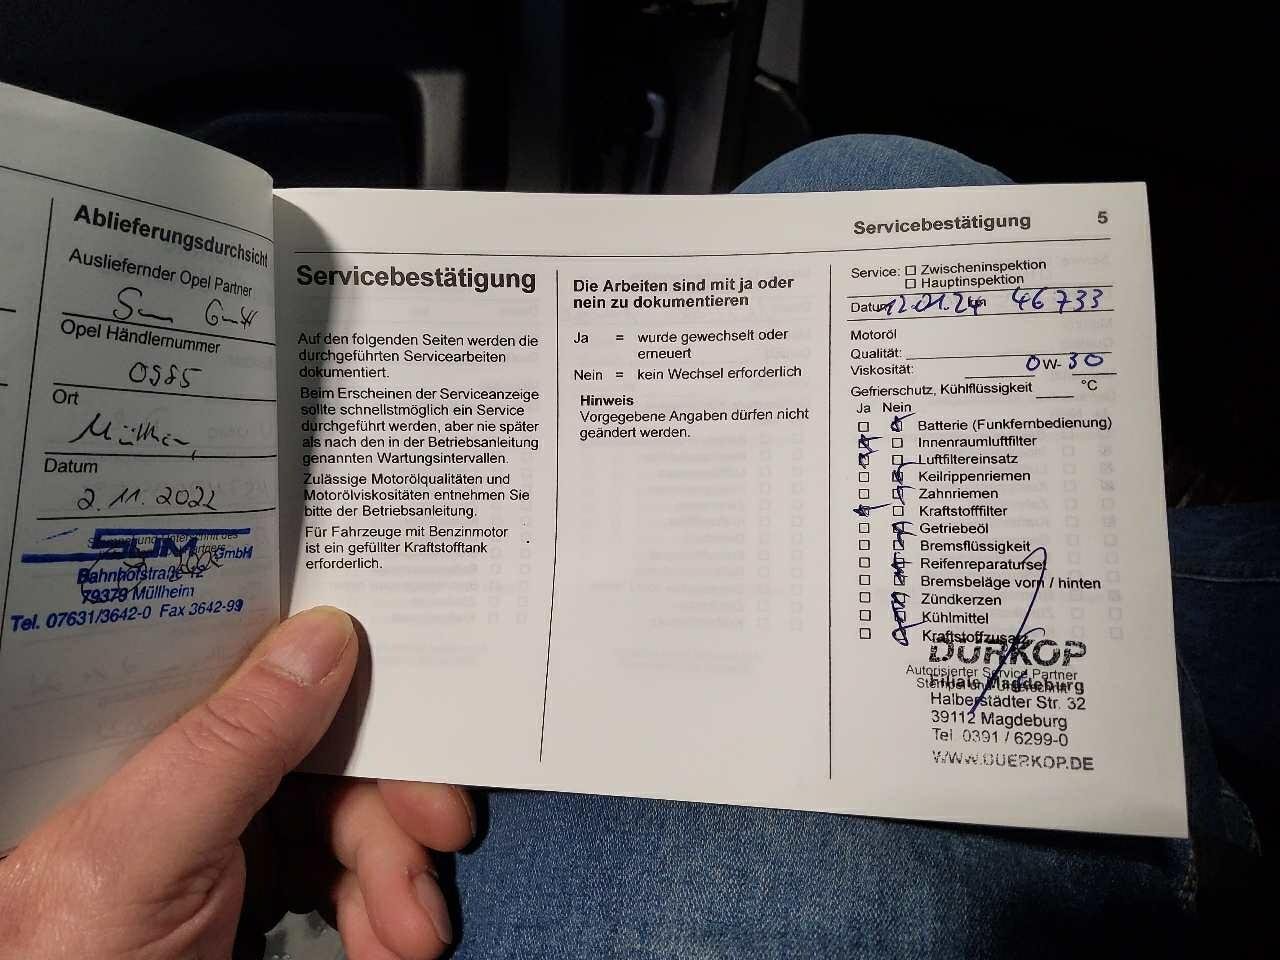 Ablieferungsdurchsicht
Ausliefernder Opel Partner
Opel Händlernummer
0985
Ort
Müllheim
Datum
2.11.2022
GmbH
Bahnhofstraße 12
79379 Müllheim
Tel. 07631/3642-0 Fax 3642-99
Servicebestätigung
Auf den folgenden Seiten werden die
durchgeführten Servicearbeiten
dokumentiert.
Beim Erscheinen der Serviceanzeige
sollte schnellstmöglich ein Service
durchgeführt werden, aber nie später
als nach den in der Betriebsanleitung
genannten Wartungsintervallen.
Zulässige Motorölqualitäten und
Motorölviskositäten entnehmen Sie
bitte der Betriebsanleitung.
Für Fahrzeuge mit Benzinmotor
ist ein gefüllter Kraftstofftank
erforderlich.
Die Arbeiten sind mit ja oder
nein zu dokumentieren
Ja = wurde gewechselt oder
erneuert
Nein = kein Wechsel erforderlich
Hinweis
Vorgegebene Angaben dürfen nicht
geändert werden.
Servicebestätigung 5
Service: Zwischeninspektion
Hauptinspektion
Datum 12.01.24 km 46733
Motoröl
Qualität:
Viskosität: 0W-30
Gefrierschutz, Kühlflüssigkeit °C
Ja Nein
Batterie (Funkfernbedienung)
Innenraumluftfilter
Luftfiltereinsatz
Keilrippenriemen
Zahnriemen
Kraftstofffilter
Getriebeöl
Bremsflüssigkeit
Reifenreparaturset
Bremsbeläge vorn / hinten
Zündkerzen
Kühlmittel
Kraftstoffzusatz
DÜRKOP
Autorisierter Service Partner
Stempel und Unterschrift
Filiale Magdeburg
Halberstädter Str. 32
39112 Magdeburg
Tel 0391 / 6299-0
WWW.DUERKOP.DE